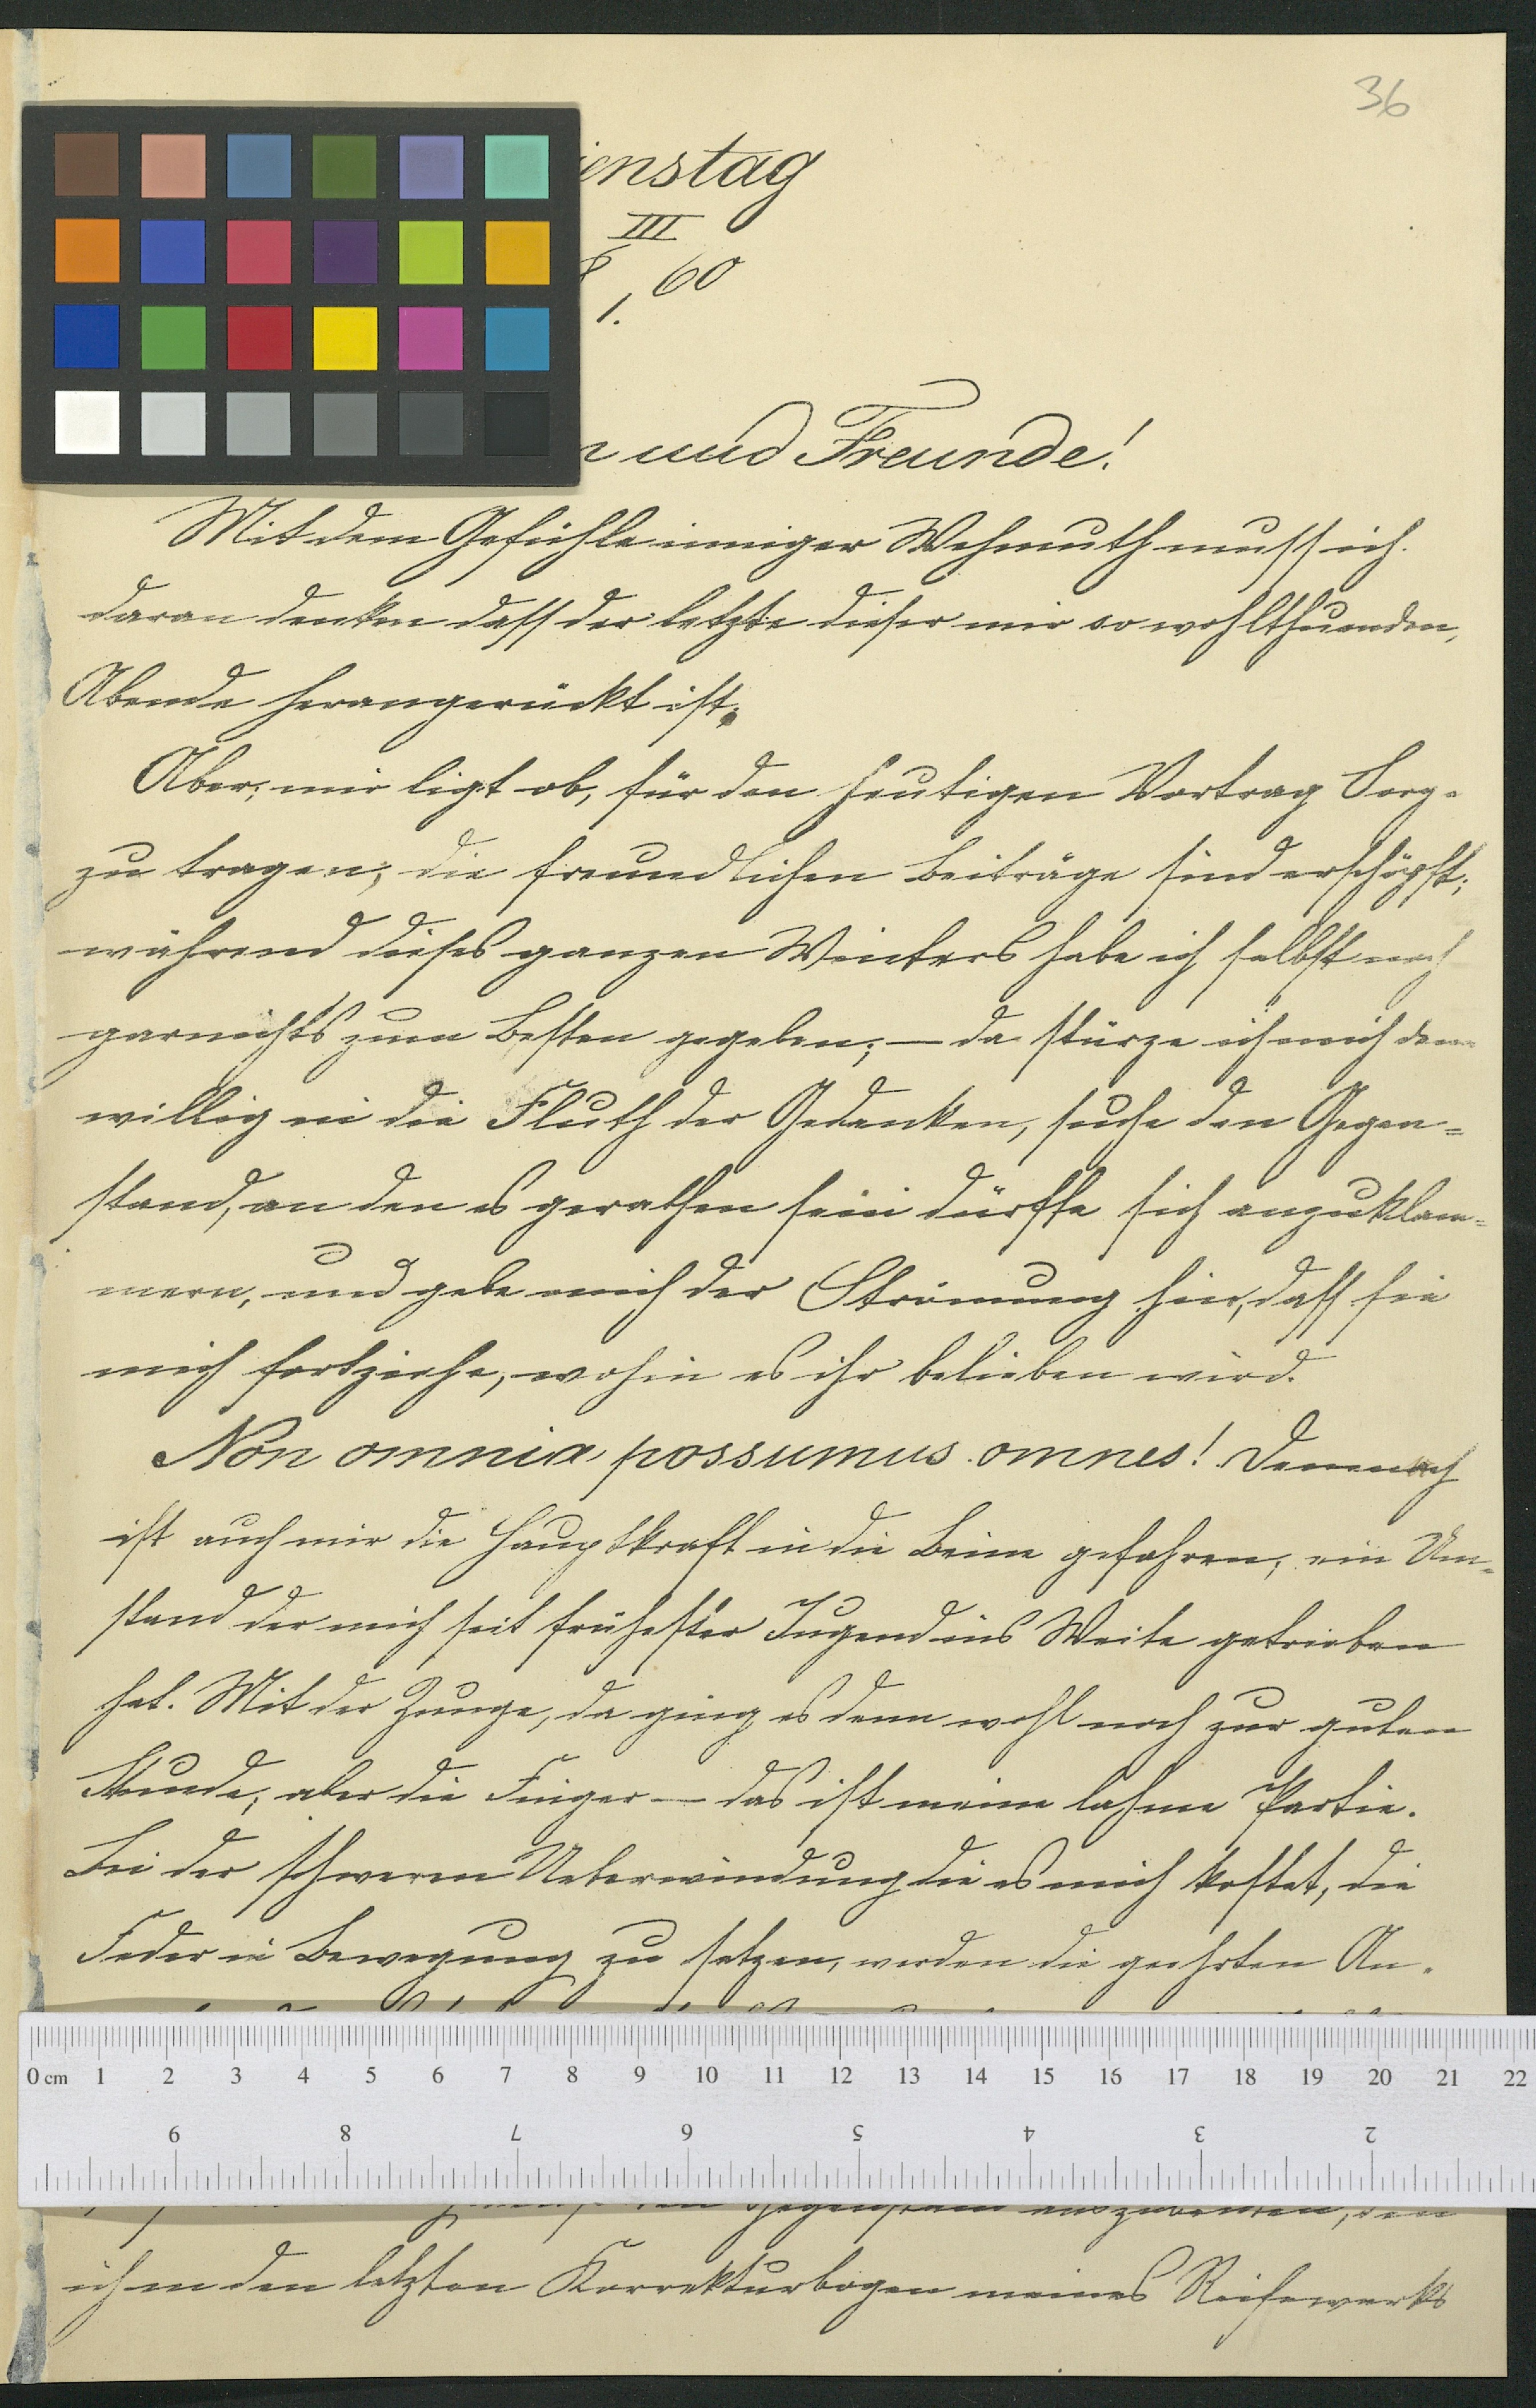 36
ienstag
III
8 60
1.
n und Freunde!
Mit dem Gefühle inniger Wehmuth muss ich
daran denken dass der letzte dieser mir so wohlthuenden,
Abende herangerückt ist.
Aber, mir ligt ob, für den heutigen Vortrag Sorg-
zu tragen; die freundlichen Beiträge sind erschöpft;
während dieses ganzen Winters habe ich selbst noch
garnichts zum Besten gegeben; — da stürze ich mich denn
willig in die Fluth der Gedanken, suche den Gegen=
stand, an den es gerathen sein dürfte sich anzuklam=
mern, und gebe mich der Strömung hin, dass sie
mich fortziehe, wohin es ihr belieben wird.
Non omnia possumus omnes! Demnach
ist auch mir die Hauptkraft in die Beine gefahren, ein Um=
stand der mich seit frühester Jugend ins Weite getrieben
hat. Mit der Zunge, da ging es denn wohl noch zur guten
Stunde; aber die Finger — das ist meine lahme Partie.
Bei der schweren Ueberwindung die es mich kostet, die
Feder in Bewegung zu setzen, werden die geehrten An-
0 cm 1 2 3 4 5 6 7 8 9 10 11 12 13 14 15 16 17 18 19 20 21 22
9 8 7 6 5 4 3 2
Gegenstand auszubeuten, den
ich in den letzten Korrekturbogen meines Reisewerks